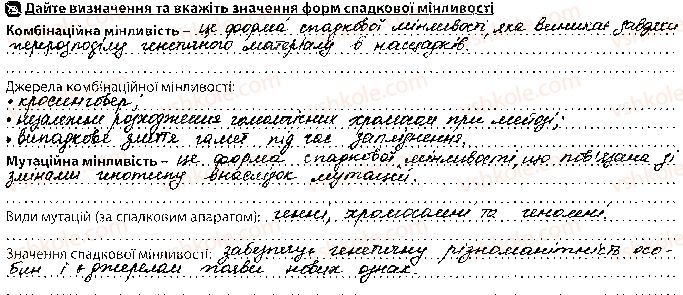 Дайте визначення та вкажіть значення форм спадкової мінливості
Комбінаційна мінливість – це форма спадкової мінливості, яка виникає завдяки
перерозподілу генетичного матеріалу в нащадків.
Джерела комбінаційної мінливості:
• кросинговер;
• незалежне розходження гомологічних хромосом при мейозі;
• випадкове злиття гамет під час запліднення.
Мутаційна мінливість – це форма спадкової мінливості, що пов'язана зі
змінами генотипу внаслідок мутацій.
Види мутацій (за спадковим апаратом): генні, хромосомні та геномні.
Значення спадкової мінливості: забезпечує генетичну різноманітність осо-
бин і є джерелом появи нових ознак.